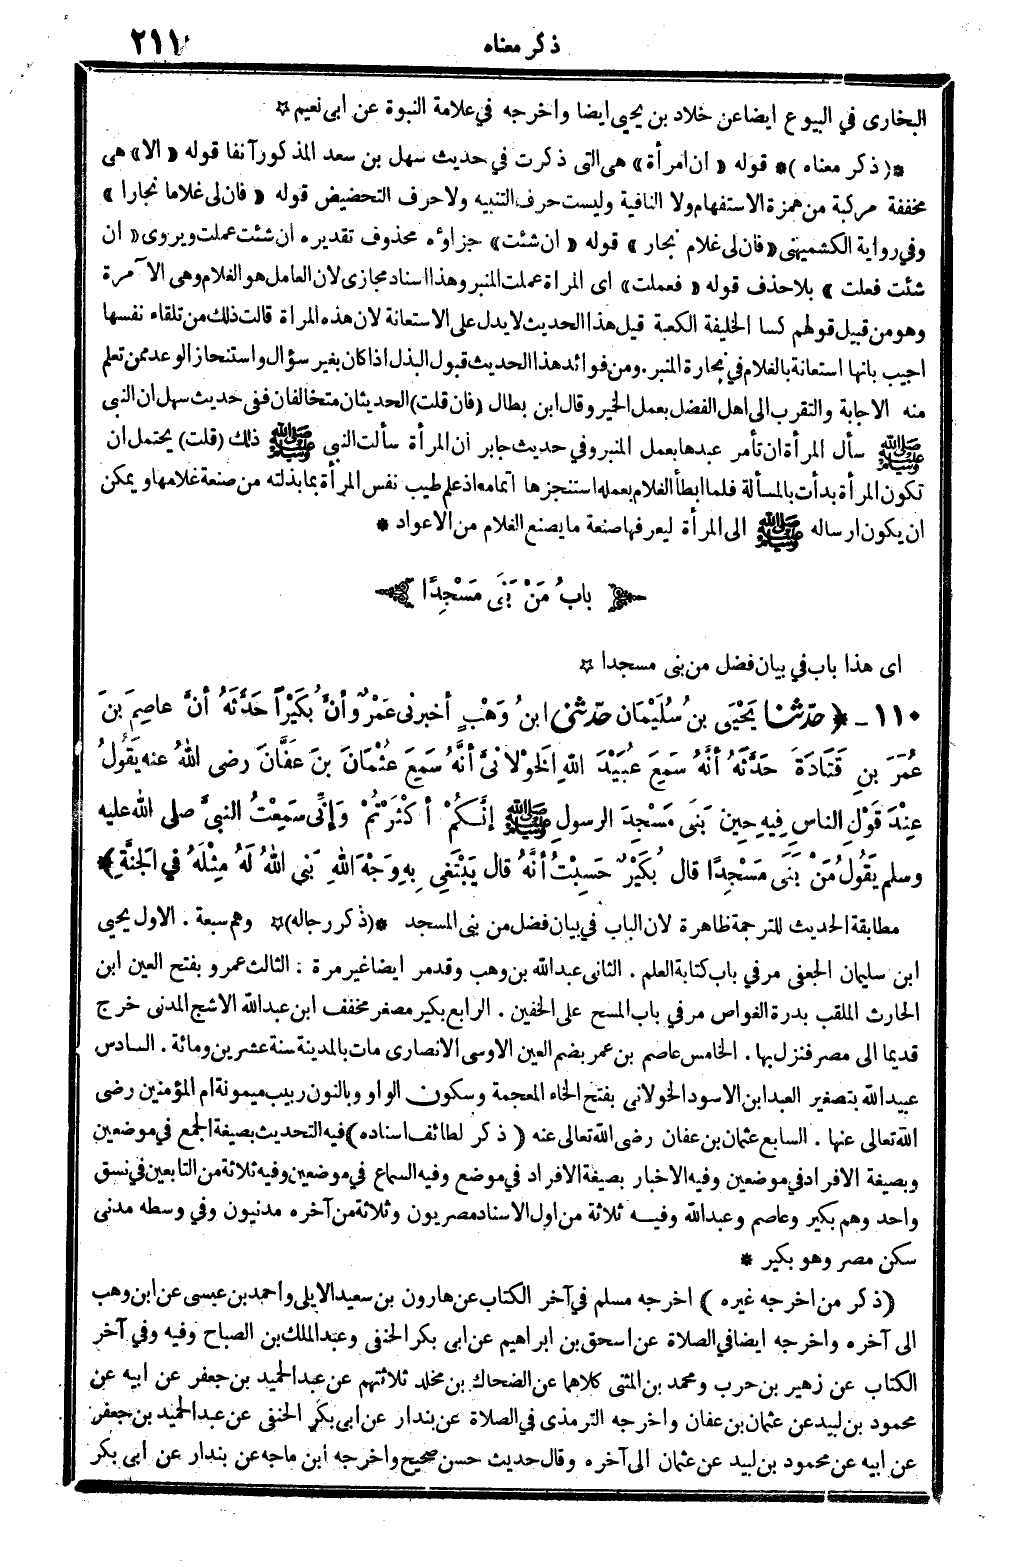 ذكر معناه
٢١١
البخارى في البيوع ايضا عن خلاد بن يحيى ايضا واخرجه في علامة النبوة عن ابى نعيم ☆
*( ذكر معناه )* قوله « ان امرأة » هى التى ذكرت في حديث سهل بن سعد المذكور آنفا قوله « الا » هى
مخففة مركبة من همزة الاستفهام ولا النافية وليست حرف التنبيه ولا حرف التحضيض قوله « فان لى غلاما نجارا »
وفي رواية الكشميهنى « فان لى غلام نجار » قوله « ان شئت » جزاؤه محذوف تقديره ان شئت عملت ويروى « ان
شئت فعلت » بلا حذف قوله « فعملت » اى المرأة عملت المنبر وهذا اسناد مجازى لان العامل هو الغلام وهى الآمرة
وهو من قبيل قولهم كسا الخليفة الكعبة قيل هذا الحديث لا يدل على الاستعانة لان هذه المرأة قالت ذلك من تلقاء نفسها
اجيب بانها استعانة بالغلام في نجارة المنبر. ومن فوائد هذا الحديث قبول البذل اذا كان بغير سؤال واستنجاز الوعد ممن تعلم
منه الاجابة والتقرب الى اهل الفضل بعمل الخير وقال ابن بطال (فان قلت) الحديثان متخالفان ففى حديث سهل ان النبى
ﷺ سأل المرأة ان تأمر عبدها بعمل المنبر وفي حديث جابر ان المرأة سألت النبى ﷺ ذلك (قلت) يحتمل ان
تكون المرأة بدأت بالمسألة فلما ابطأ الغلام بعمله استنجزها اتمامه اذ علم طيب نفس المرأة بما بذلته من صنعة غلامها ويمكن
ان يكون ارساله ﷺ الى المرأة ليعرفها صنعة ما يصنع الغلام من الاعواد *
بابُ مَنْ بَنَى مَسْجِدًا
اى هذا باب في بيان فضل من بنى مسجدا ☆
١١٠ - ﴿ حدثنا يَحْيَى بنُ سُلَيْمَانَ حدثنى ابنُ وَهْبٍ أخبرنى عَمْرٌو أنَّ بُكَيْرًا حَدَّثَهُ أنَّ عاصِمَ بنَ
عُمَرَ بنِ قَتَادَةَ حَدَّثَهُ أنَّهُ سَمِعَ عُبَيْدَ اللهِ الخَوْلانىَّ أنَّهُ سَمِعَ عثْمَانَ بنَ عفَّانَ رضى اللهُ عنه يَقُولُ
عِنْدَ قَوْلِ الناسِ فِيهِ حِينَ بَنَى مَسْجِدَ الرسولِ ﷺ إنَّكُمْ أكْثَرْتُمْ وَإنِّى سَمِعْتُ النبىَّ صلى اللهُ عليه
وسلم يَقُولُ مَنْ بَنَى مَسْجِدًا قال بُكَيْرٌ حَسِبْتُ أنَّهُ قال يَبْتَغِى بِهِ وَجْهَ اللهِ بَنَى اللهُ لَهُ مِثْلَهُ في الجَنَّةِ ﴾*
مطابقة الحديث للترجمة ظاهرة لان الباب في بيان فضل من بنى المسجد *(ذكر رجاله)☆ وهم سبعة . الاول يحيى
ابن سليمان الجعفى مر في باب كتابة العلم . الثانى عبد الله بن وهب وقد مر ايضا غير مرة : الثالث عمرو بفتح العين ابن
الحارث الملقب بدرة الغواص مر في باب المسح على الخفين . الرابع بكير مصغر مخفف ابن عبد الله الاشج المدنى خرج
قديما الى مصر فنزل بها . الخامس عاصم بن عمر بضم العين الاوسى الانصارى مات بالمدينة سنة عشرين ومائة . السادس
عبيد الله بتصغير العبد ابن الاسود الخولانى بفتح الخاء المعجمة وسكون الواو وبالنون ربيب ميمونة ام المؤمنين رضى
الله تعالى عنها . السابع عثمان بن عفان رضى الله تعالى عنه ( ذكر لطائف اسناده ) فيه التحديث بصيغة الجمع في موضعين
وبصيغة الافراد في موضعين وفيه الاخبار بصيغة الافراد في موضع وفيه السماع في موضعين وفيه ثلاثة من التابعين في نسق
واحد وهم بكير وعاصم وعبد الله وفيه ثلاثة من اول الاسناد مصريون وثلاثة من آخره مدنيون وفي وسطه مدنى
سكن مصر وهو بكير *
( ذكر من اخرجه غيره ) اخرجه مسلم في آخر الكتاب عن هارون بن سعيد الايلى واحمد بن عيسى عن ابن وهب
الى آخره واخرجه ايضا في الصلاة عن اسحق بن ابراهيم عن ابى بكر الحنفى وعبد الملك بن الصباح وفيه وفي آخر
الكتاب عن زهير بن حرب ومحمد بن المثنى كلاهما عن الضحاك بن مخلد ثلاثتهم عن عبد الحميد بن جعفر عن ابيه عن
محمود بن لبيد عن عثمان بن عفان واخرجه الترمذى في الصلاة عن بندار عن ابى بكر الحنفى عن عبد الحميد بن جعفر
عن ابيه عن محمود بن لبيد عن عثمان الى آخره وقال حديث حسن صحيح واخرجه ابن ماجه عن بندار عن ابى بكر